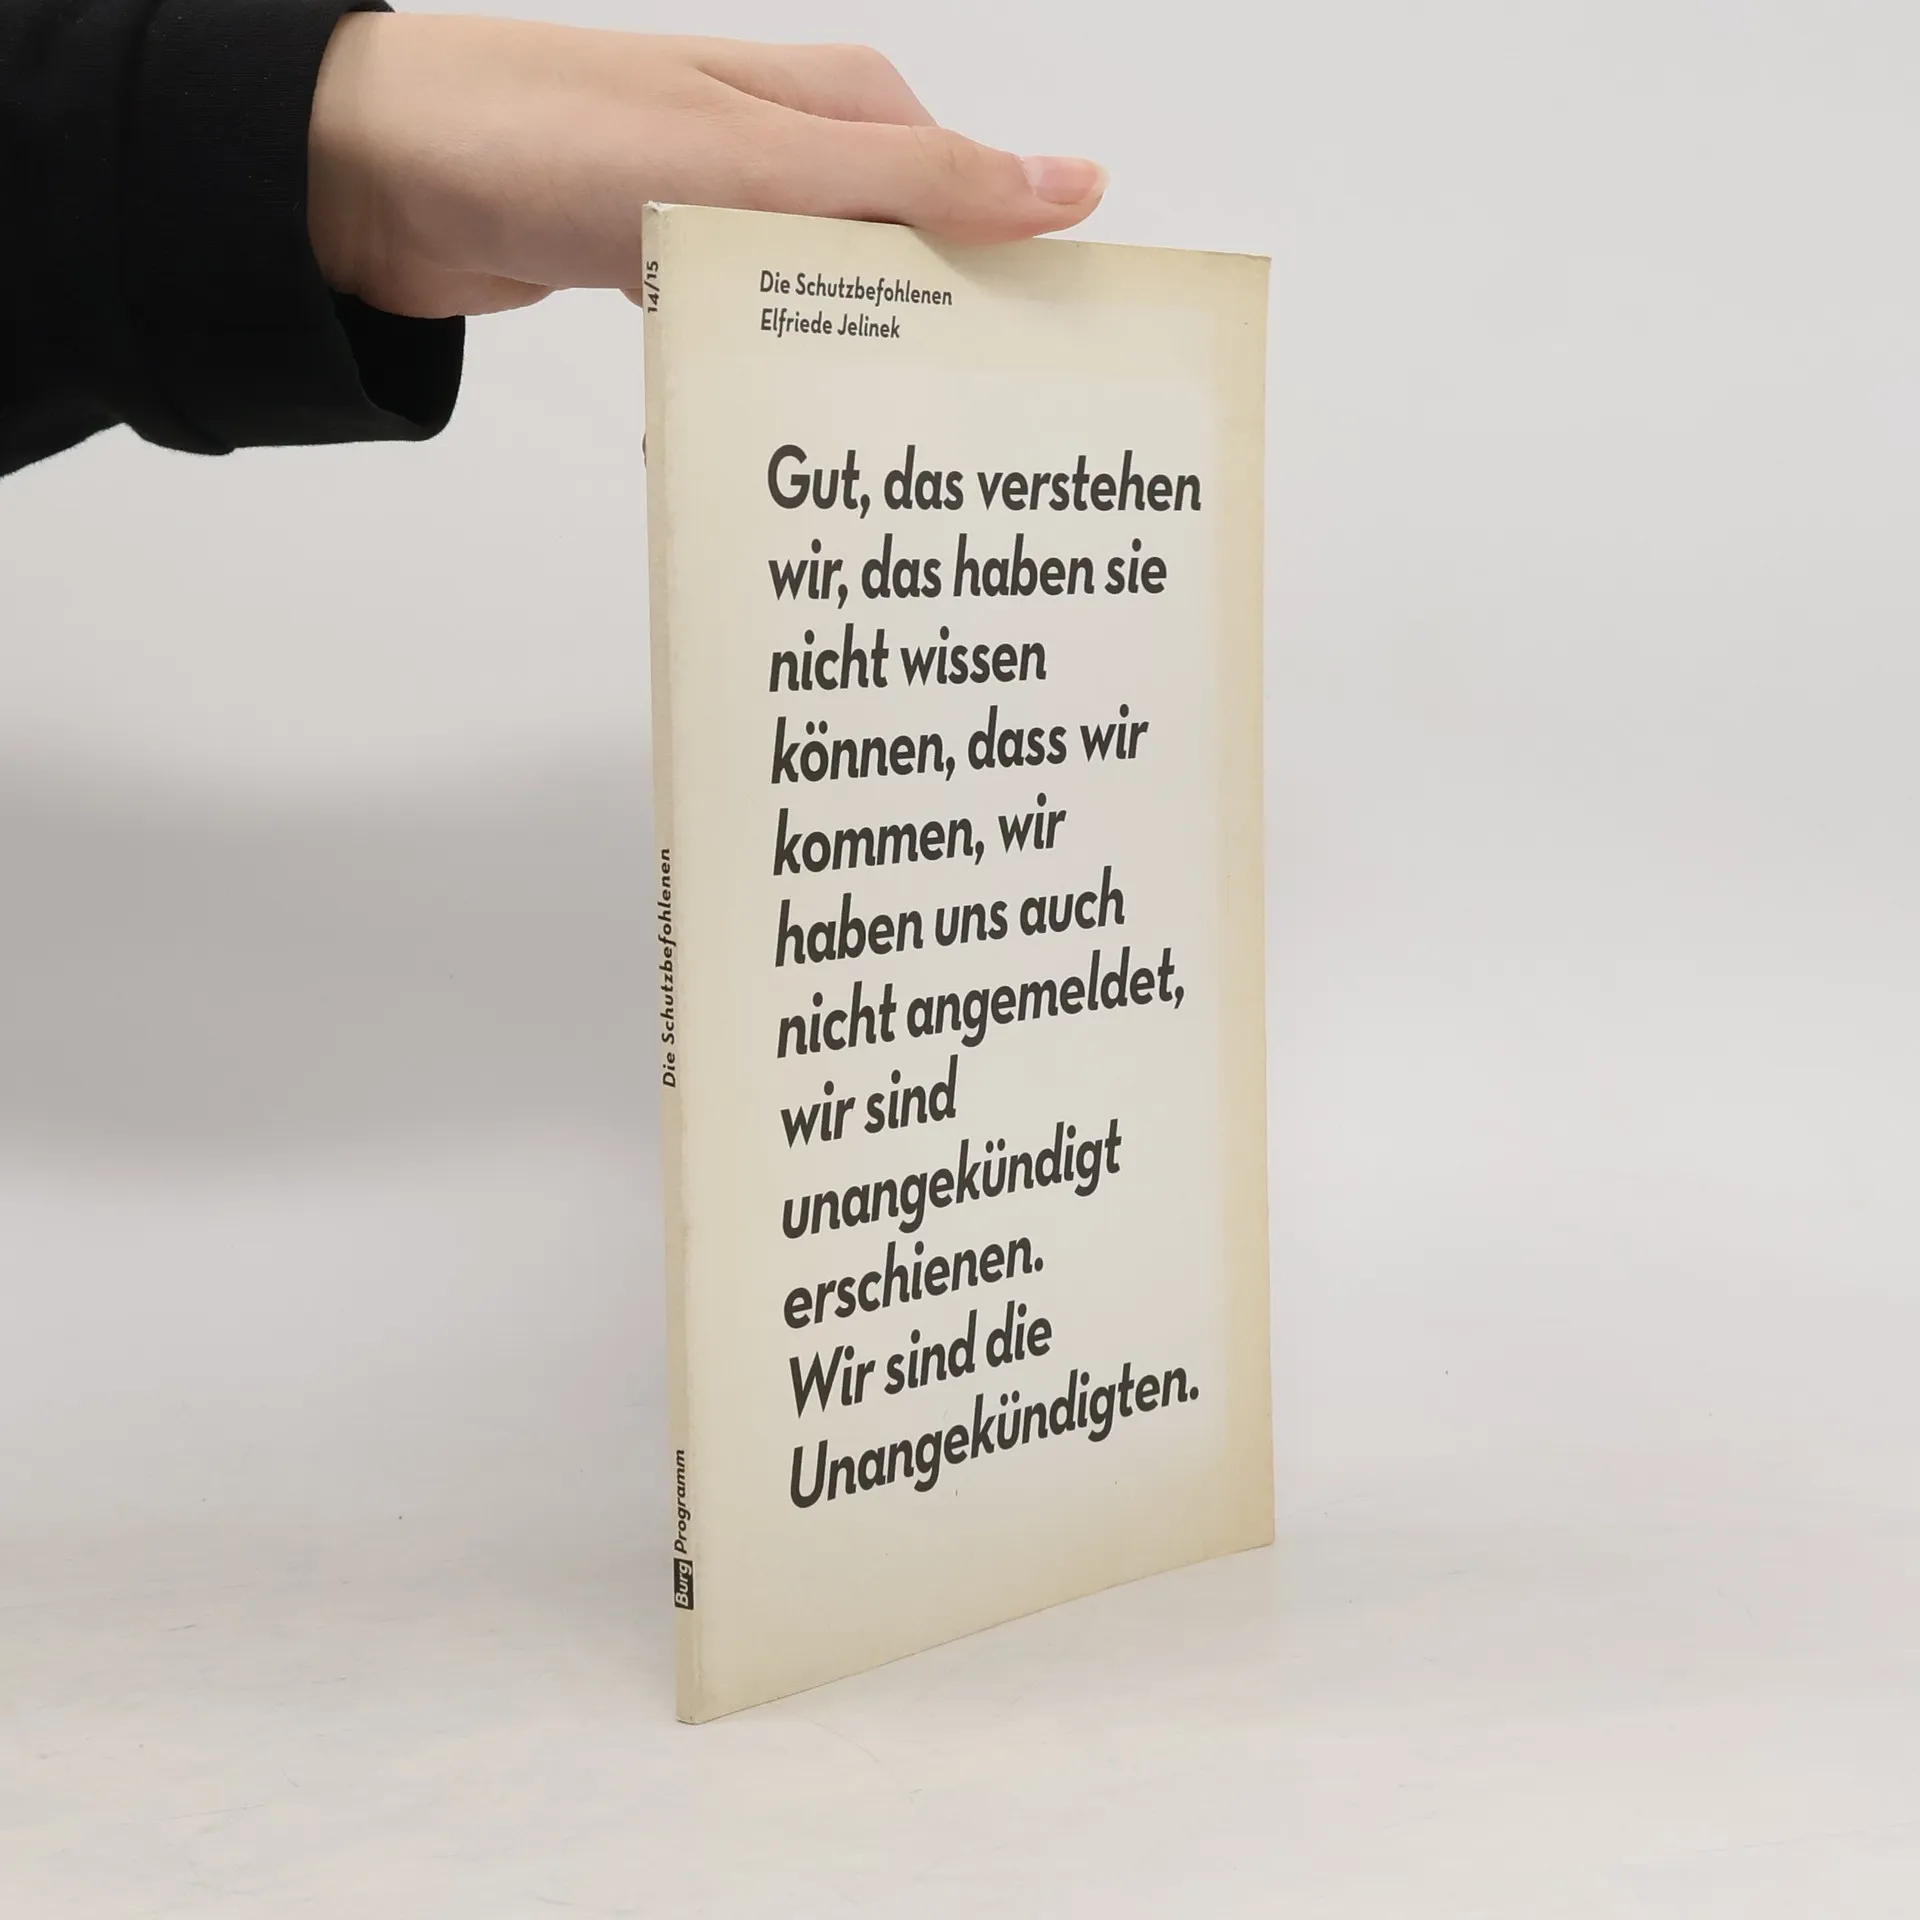 Die Schutzbefohlenen
Elfriede Jelinek
Gut, das verstehen
wir, das haben sie
nicht wissen
können, dass wir
kommen, wir
haben uns auch
nicht angemeldet,
wir sind
unangekündigt
erschienen.
Wir sind die
Unangekündigten.
14/15
Die Schutzbefohlenen
Burg Programm